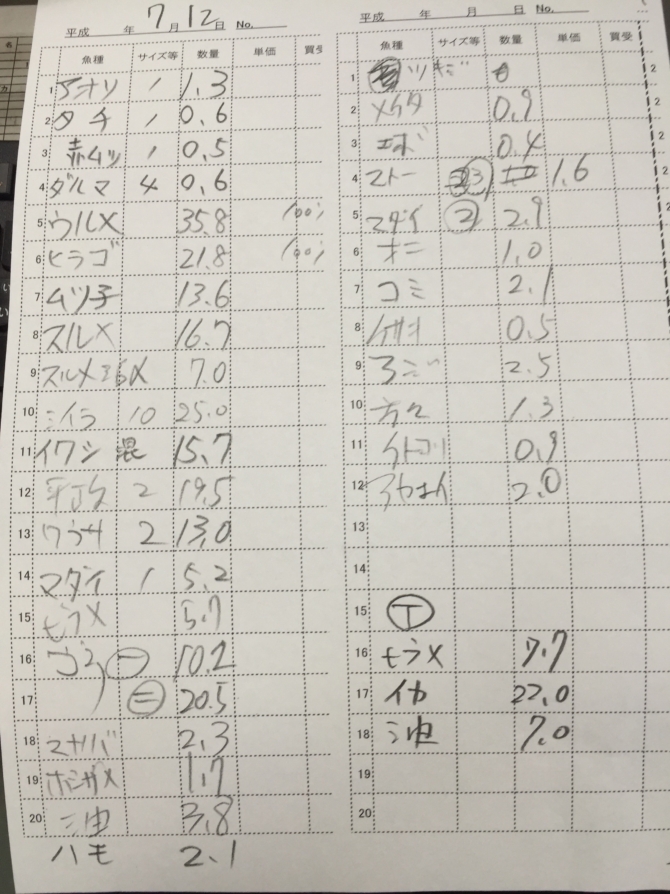 平成 年 7月 12日 No.
魚種 サイズ等 数量 単価 買受
1 アオリ 1 1.3
2 タチ 1 0.6
3 赤ムツ 1 0.5
4 ダルマ 4 0.6
5 ウルメ 35.8 100%
6 ヒラゴ 21.8 100%
7 ムツ子 13.6
8 スルメ 16.7
9 スルメ 7.0
10 シイラ 10 25.0
11 イワシ 混 15.7
12 平政 2 19.5
13 ワラサ 2 13.0
14 マダイ 1 5.2
15 ヒラメ 5.7
16 ㊀ 10.2
17 ㊁ 20.5
18 マサバ 2.3
19 ホシザメ 1.7
20 三由 3.8
ハモ 2.1
平成 年 月 日 No.
魚種 サイズ等 数量 単価 買受
1
2 メイタ 0.9
3 エボ 0.4
4 マトー ③ 1.6
5 マダイ ② 2.9
6 オニ 1.0
7 コミ 2.1
8 0.5
9 2.5
10 方々 1.3
11 0.9
12 2.0
13
14
15
16 ヒラメ 7.7
17 イカ 22.0
18 7.0
19
20